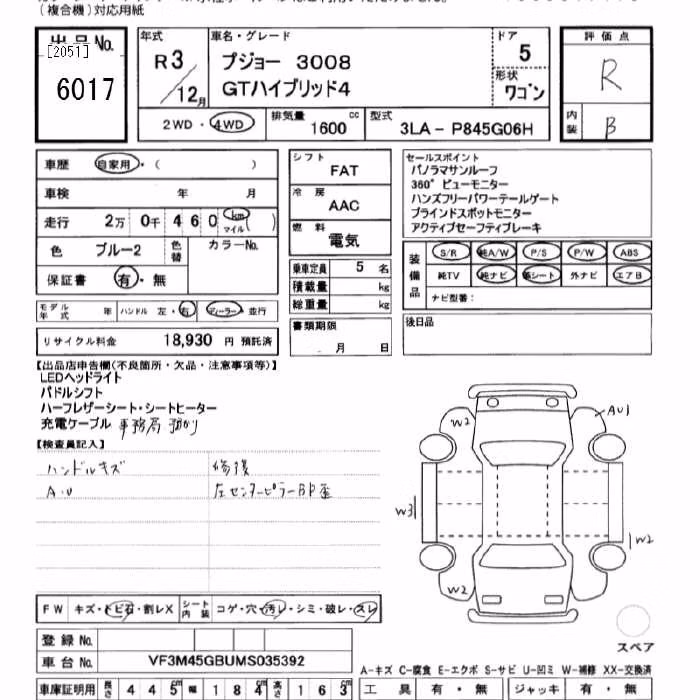 (複合機)対応用紙
出品No.
[2051]
6017
年式
R3/12月
車名・グレード
プジョー 3008
GTハイブリッド4
ドア
5
形状
ワゴン
評価点
R
内装
B
2WD・4WD
排気量 1600 cc
型式 3LA-P845G06H
車歴 自家用・( )
車検 年 月
走行 2万 0千 4 6 0 km マイル ( )
色 ブルー2 色替 カラーNo.
保証書 有・無
モデル年式 年 ハンドル 左・右 ディーラー・並行
リサイクル料金 18,930 円 預託済
シフト
FAT
冷房
AAC
燃料
電気
乗車定員 5 名
積載量 kg
総重量 kg
書類期限
月 日
セールスポイント
パノラマサンルーフ
360°ビューモニター
ハンズフリーパワーテールゲート
ブラインドスポットモニター
アクティブセーフティブレーキ
装備品
S/R 純A/W P/S P/W ABS
純TV 純ナビ 革シート 外ナビ エアB
ナビ型番:
後日品
【出品店申告欄(不良箇所・欠品・注意事項等)】
LEDヘッドライト
パドルシフト
ハーフレザーシート・シートヒーター
充電ケーブル 事務局預かり
【検査員記入】
ハンドルキズ
A・U
修復
左センターピラーBP歪
W2
AU1
W3
W2
W2
スペア
FW キズ・トビ石・割レX シート内装 コゲ・穴・汚レ・シミ・破レ・スレ
登録No.
車台No. VF3M45GBUMS035392
A-キズ C-腐食 E-エクボ S-サビ U-凹ミ W-補修 XX-交換済
車庫証明用 長さ 4 4 5 幅 1 8 4 高さ 1 6 3
工具 有・無 ジャッキ 有・無